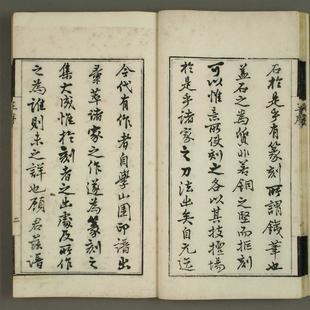 石於是乎有篆刻所謂鐵筆也
蓋石之為質非若銅之堅而拒刻
可以惟意所使刻之各以其技擅場
於是乎諸家之刀法出矣自元迄
今代有作者自學山園印譜出
彙萃諸家之作遂為篆刻之
集大成惟於刻者之出處及所作
之為誰則未之詳也顧君茲譜